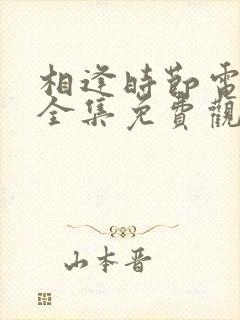 相逢時節電
全集免費觀
山本晋